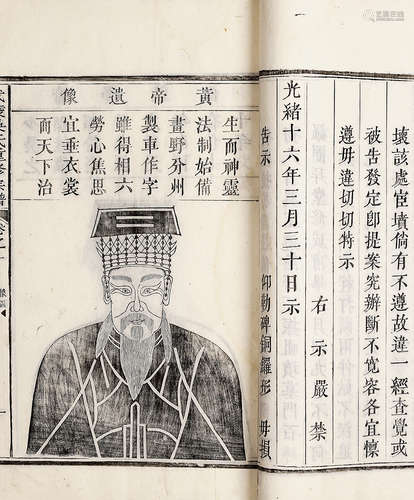 壞該處宦墳倘有不遵故違一經查覺或
被告發定即提案究辦斷不寬容各宜懍
遵毋違切切特示
右示嚴禁
光緒十六年三月三十日示
告示
仰勒碑銅羅形
毋損
黃帝遺像
生而神靈
法制始備
畫野分州
製車作字
雖得相六
勞心焦思
宜垂衣裳
而天下治